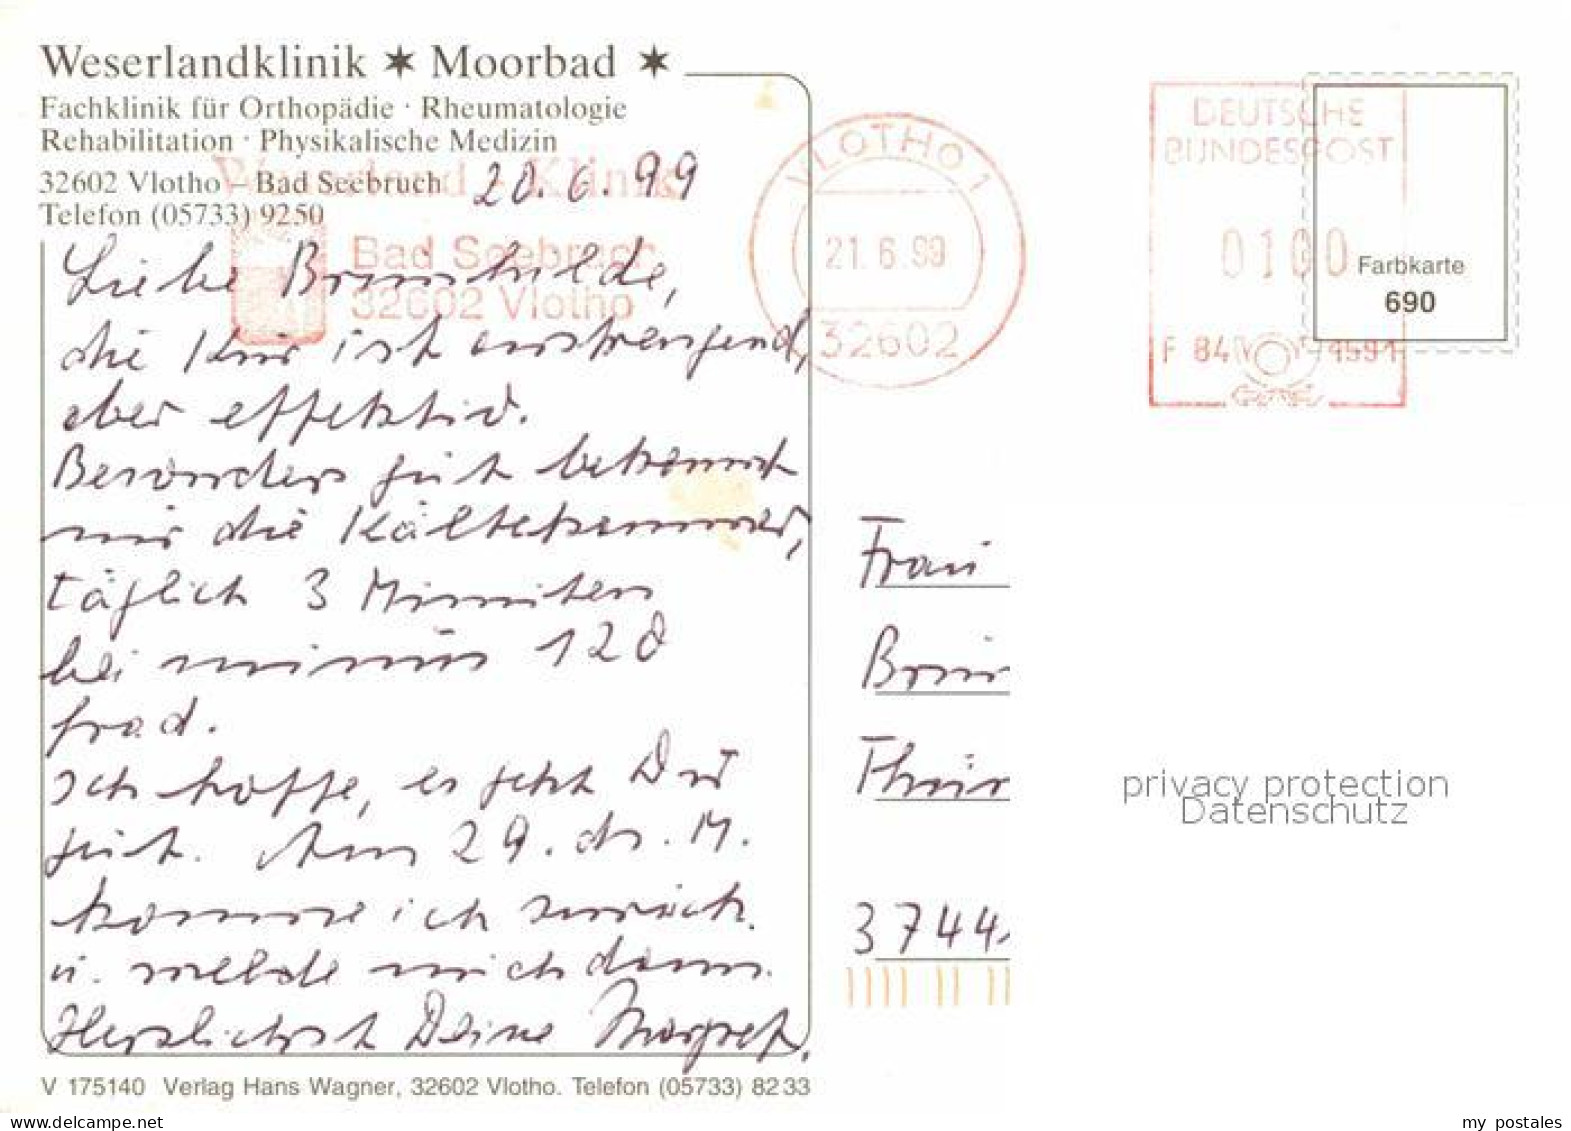 Weserlandklinik ✶ Moorbad ✶
Fachklinik für Orthopädie · Rheumatologie
Rehabilitation · Physikalische Medizin
32602 Vlotho – Bad Seebruch
Telefon (05733) 9250
20.6.99
Weserland-Klinik
Bad Seebruch
32602 Vlotho
VLOTHO 1
21.6.99
32602
DEUTSCHE
BUNDESPOST
0100
F 84 4591
Farbkarte
690
Liebe Brunhilde,
die Kur ist anstrengend,
aber effektiv.
Besonders gut bekommt
mir die Kältekammer,
täglich 3 Minuten
bei minus 120
Grad.
Ich hoffe, es geht Dir
gut. Am 29. ds. M.
komme ich zurück
u. melde mich dann.
Herzlichst Deine Margret.
Frau
3744
privacy protection
Datenschutz
V 175140 Verlag Hans Wagner, 32602 Vlotho. Telefon (05733) 8233
delcampe.net
my_postales